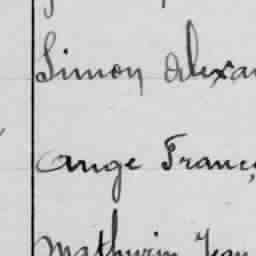 Simon Alexan
Ange Franç
Mathurin Jean